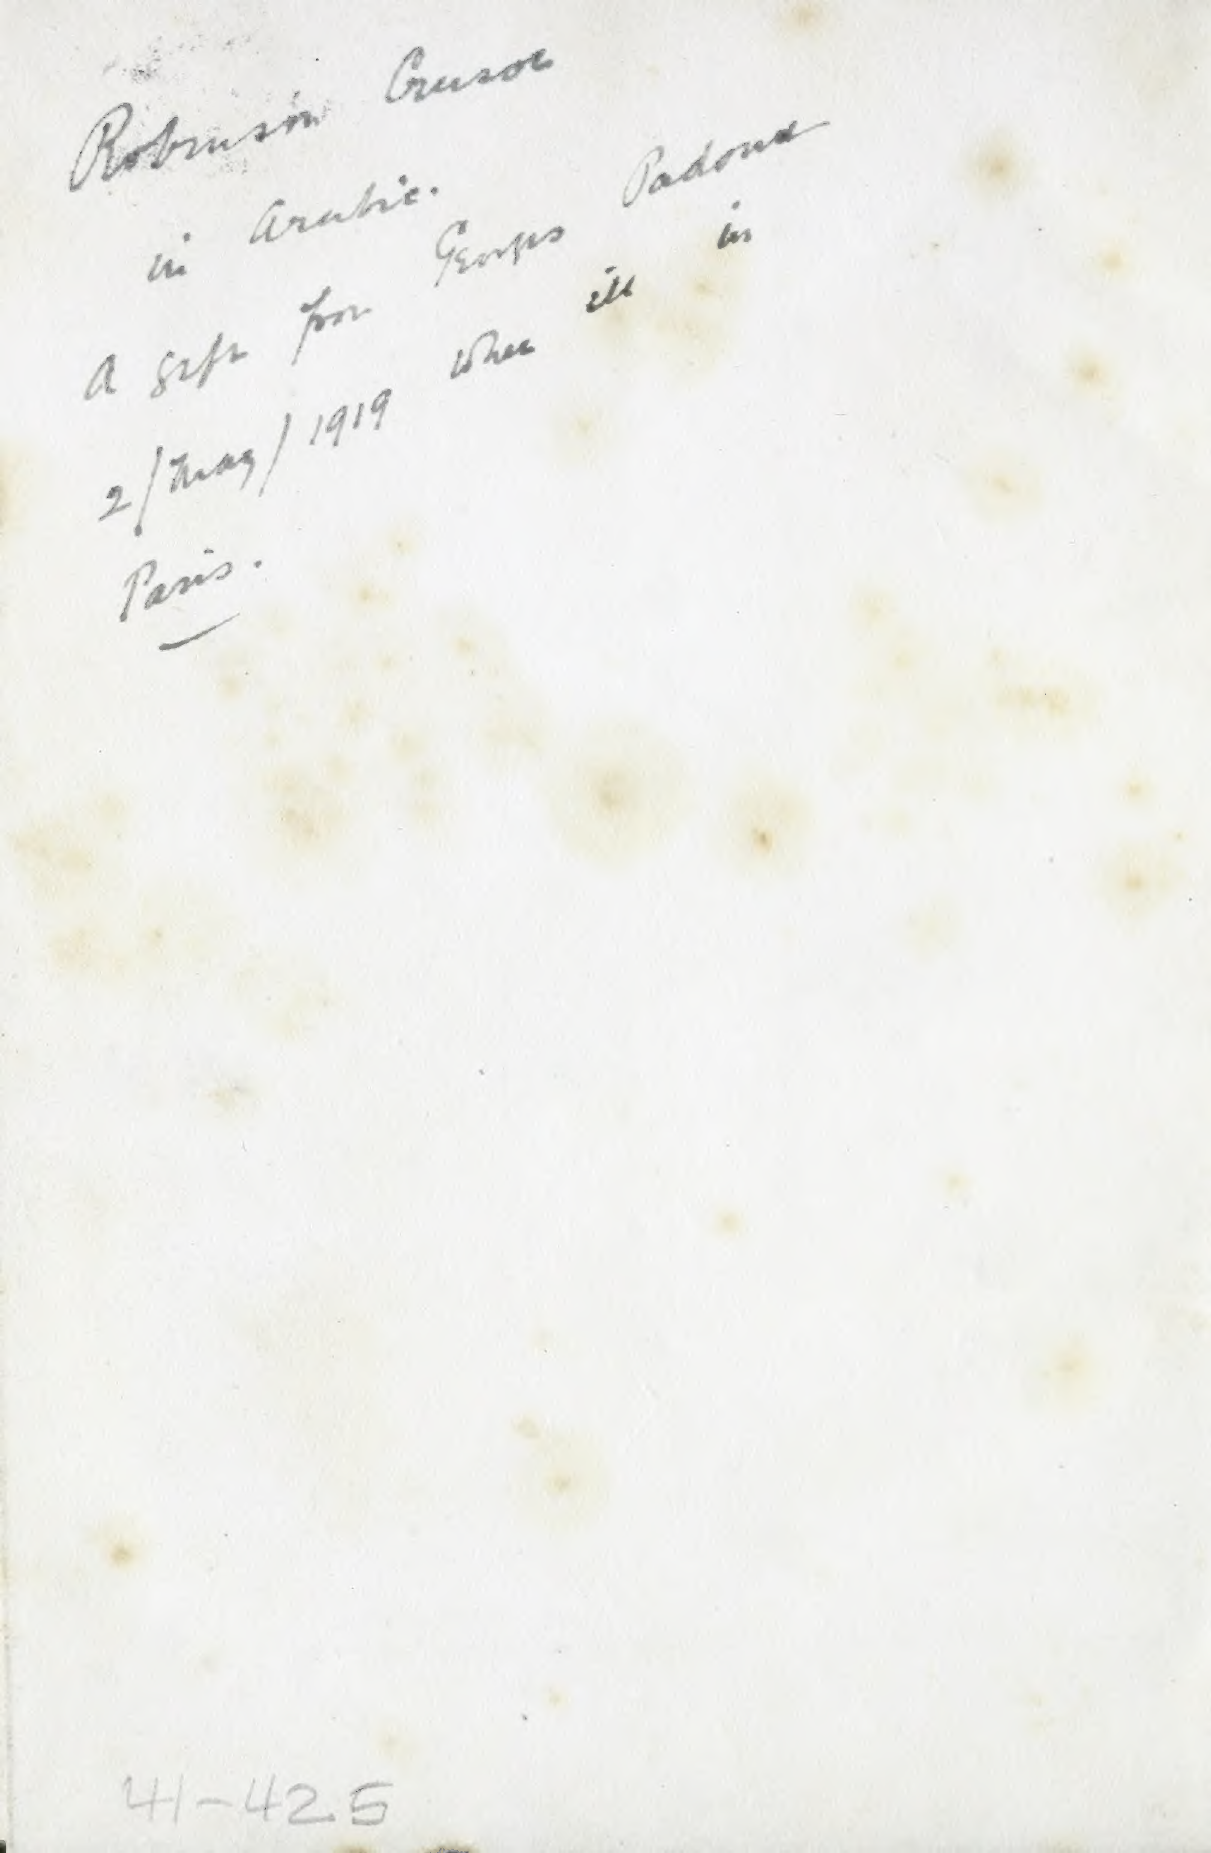 Robinson Crusoe
in Arabic.
A gift from Georges Padoux
2/May/1919 when ill in
Paris.
41-425